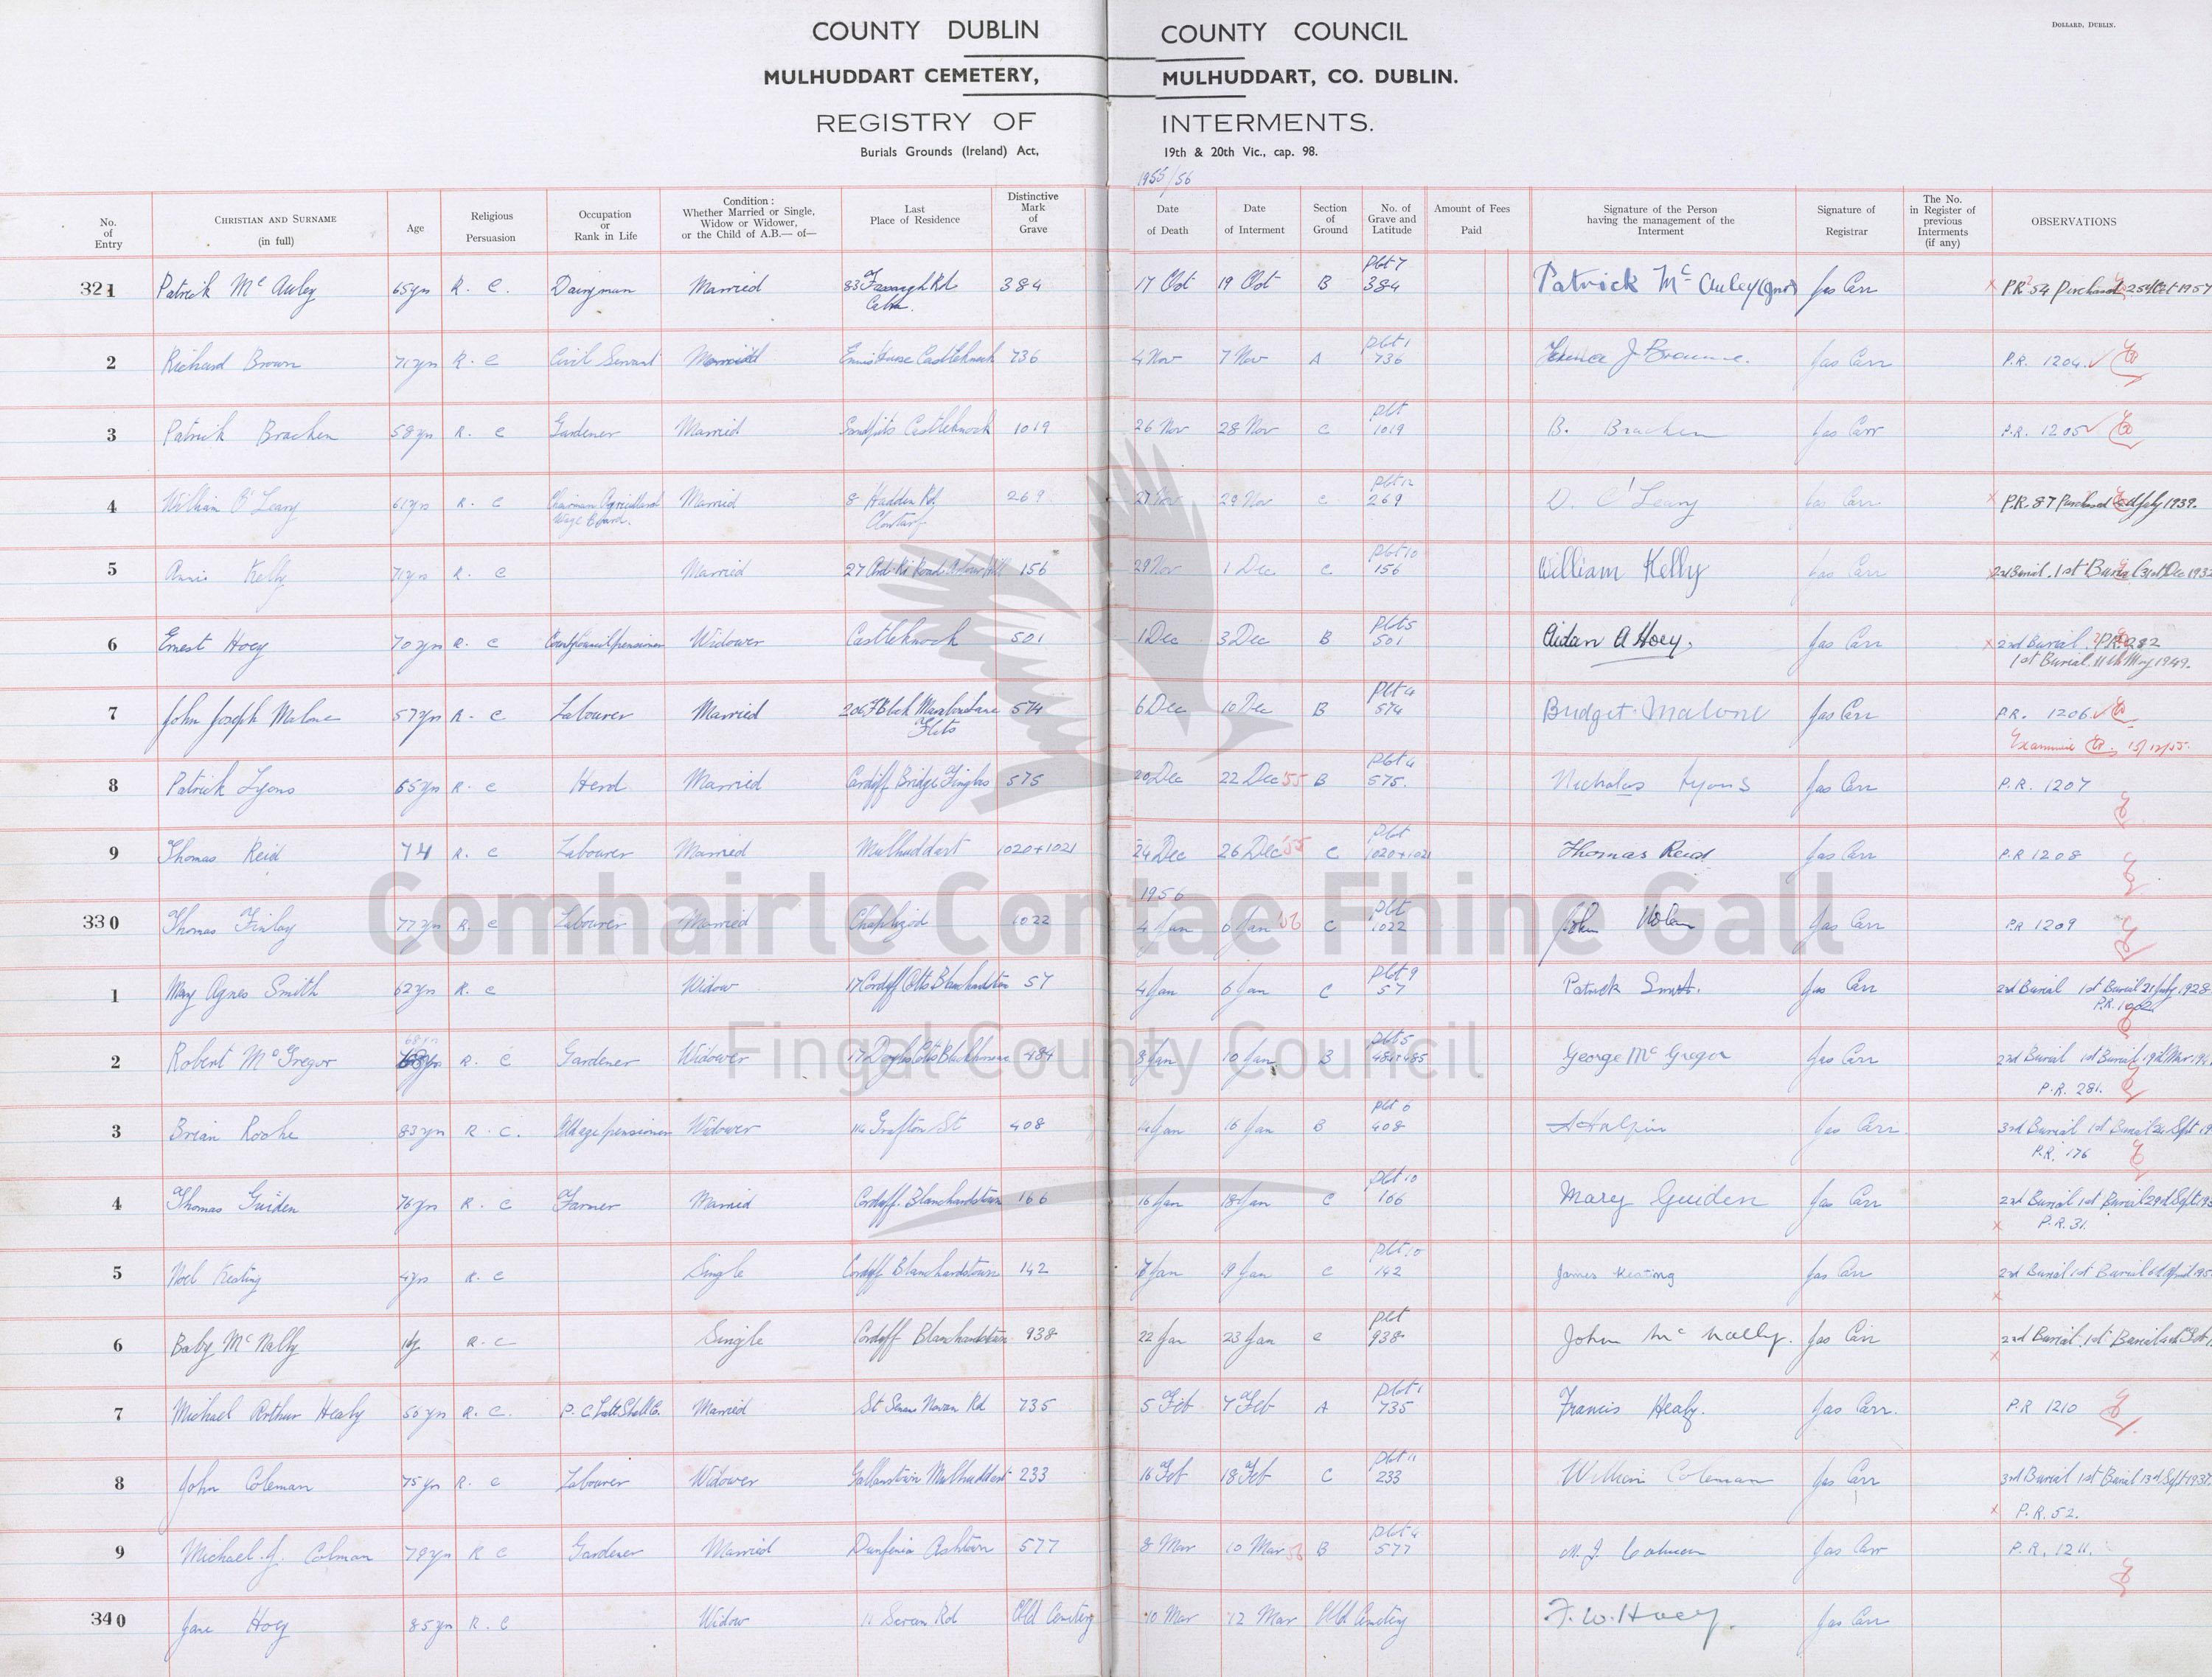 COUNTY DUBLIN COUNTY COUNCIL
DOLLARD, DUBLIN.
MULHUDDART CEMETERY, MULHUDDART, CO. DUBLIN.
REGISTRY OF INTERMENTS.
Burials Grounds (Ireland) Act, 19th & 20th Vic., cap. 98.
1955/56
No. of Entry CHRISTIAN AND SURNAME (in full) Age Religious Persuasion Occupation or Rank in Life Condition: Whether Married or Single, Widow or Widower, or the Child of A.B.— of— Last Place of Residence Distinctive Mark of Grave Date of Death Date of Interment Section of Ground No. of Grave and Latitude Amount of Fees Paid Signature of the Person having the management of the Interment Signature of Registrar The No. in Register of previous Interments (if any) OBSERVATIONS
321 Patrick Mc Auley 65yrs R. C. Dairyman Married 83 Rd Cabra. 384 17 Oct 19 Oct B Plot 7 384 Patrick Mc Auley (Jnr) Jas Carr P.R. 54 Purchased 25th Oct 1957
2 Richard Brown 71yrs R. C Civil Servant Married House Castleknock 736 4 Nov 7 Nov A Plot 1 736 J Browne. Jas Carr P.R. 1204.
3 Patrick Bracken 58yrs R. C Gardener Married Sandpits Castleknock 1019 26 Nov 28 Nov C Plot 1019 B. Bracken Jas Carr P.R. 1205
4 William O'Leary 61yrs R. C Chairman Agricultural Wage Board. Married 8 Haddon Rd Clontarf 269 27 Nov 29 Nov C Plot 12 269 D. O'Leary Jas Carr P.R. 87 Purchased July 1939.
5 Annie Kelly 71yrs R. C Married 27 Ard Ri Road Arbour Hill 156 29 Nov 1 Dec C Plot 10 156 William Kelly Jas Carr 2nd Burial. 1st Burial 31st Dec 1932
6 Ernest Hoey 70yrs R. C Widower Castleknock 501 1 Dec 3 Dec B Plot 5 501 Aidan A Hoey. Jas Carr 2nd Burial. P.R. 282
1st Burial 11th May 1949.
7 John Joseph Malone 57yrs R. C Labourer Married 206 F Block Marrowbone Flats 574 6 Dec 10 Dec B Plot 4 574 Bridget Malone Jas Carr P.R. 1206.
Examined 15/12/55.
8 Patrick Lyons 65yrs R. C Herd Married Cardiff Bridge Finglas 575 20 Dec 22 Dec '55 B Plot 4 575. Nicholas Lyons Jas Carr P.R. 1207
9 Thomas Reid 74 R. C Labourer Married Mulhuddart 1020+1021 24 Dec 26 Dec '55 C Plot 1020+1021 Thomas Reid Jas Carr P.R 1208
1956
330 Thomas Finlay 77yrs R. C Labourer Married Chapelizod 1022 4 Jan 6 Jan '56 C Plot 1022 John Nolan Jas Carr P.R 1209
1 Mary Agnes Smith 62yrs R. C Widow 17 Corduff Cotts Blanchardstown 57 4 Jan 6 Jan C Plot 9 57 Patrick Smith. Jas Carr 2nd Burial 1st Burial 21 July 1928
2 Robert McGregor 68yrs R. C Gardener Widower 17 Cotts 484 8 Jan 10 Jan B Plot 5 484+485 George Mc Gregor Jas Carr 2nd Burial 1st Burial 19th Mar
P.R. 281.
3 Brian Roche 83yrs R. C. Old age pensioner Widower 114 Grafton St 408 14 Jan 16 Jan B Plot 6 408 A Halpin Jas Carr 3rd Burial 1st Burial Sept
P.R. 176
4 Thomas Guiden 76yrs R. C Farmer Married Corduff. Blanchardstown 166 16 Jan 18 Jan C Plot 10 166 Mary Guiden Jas Carr 2nd Burial 1st Burial 29th Sept
P.R. 31.
5 Noel Keating 4yrs R. C Single Corduff Blanchardstown 142 9 Jan C Plot 10 142 James Keating Jas Carr 2nd Burial 1st Burial 6th April
6 Baby McNally R. C Single Corduff Blanchardstown 938 22 Jan 23 Jan C Plot 938 John Mc Nally. Jas Carr 2nd Burial. 1st Burial
7 Michael Arthur Healy 56yrs R. C. Married Navan Rd 735 5 Feb 7 Feb A Plot 1 735 Francis Healy. Jas Carr. P.R 1210
8 John Coleman 75yrs R. C Labourer Widower Mulhuddart 233 16 Feb 18 Feb C Plot 11 233 William Coleman Jas Carr 3rd Burial 1st Burial 13th Sept 1937.
P.R. 52.
9 Michael J. Colman 79yrs R C Gardener Married Ashtown 577 8 Mar 10 Mar 56 B Plot 4 577 M. J. Colman Jas Carr P.R. 1211.
340 Jane Hoey 85yrs R. C Widow 11 Rd Old Cemetery 10 Mar 12 Mar Old Cemetery F. W. Hoey. Jas Carr
Comhairle Contae Fhine Gall
Fingal County Council